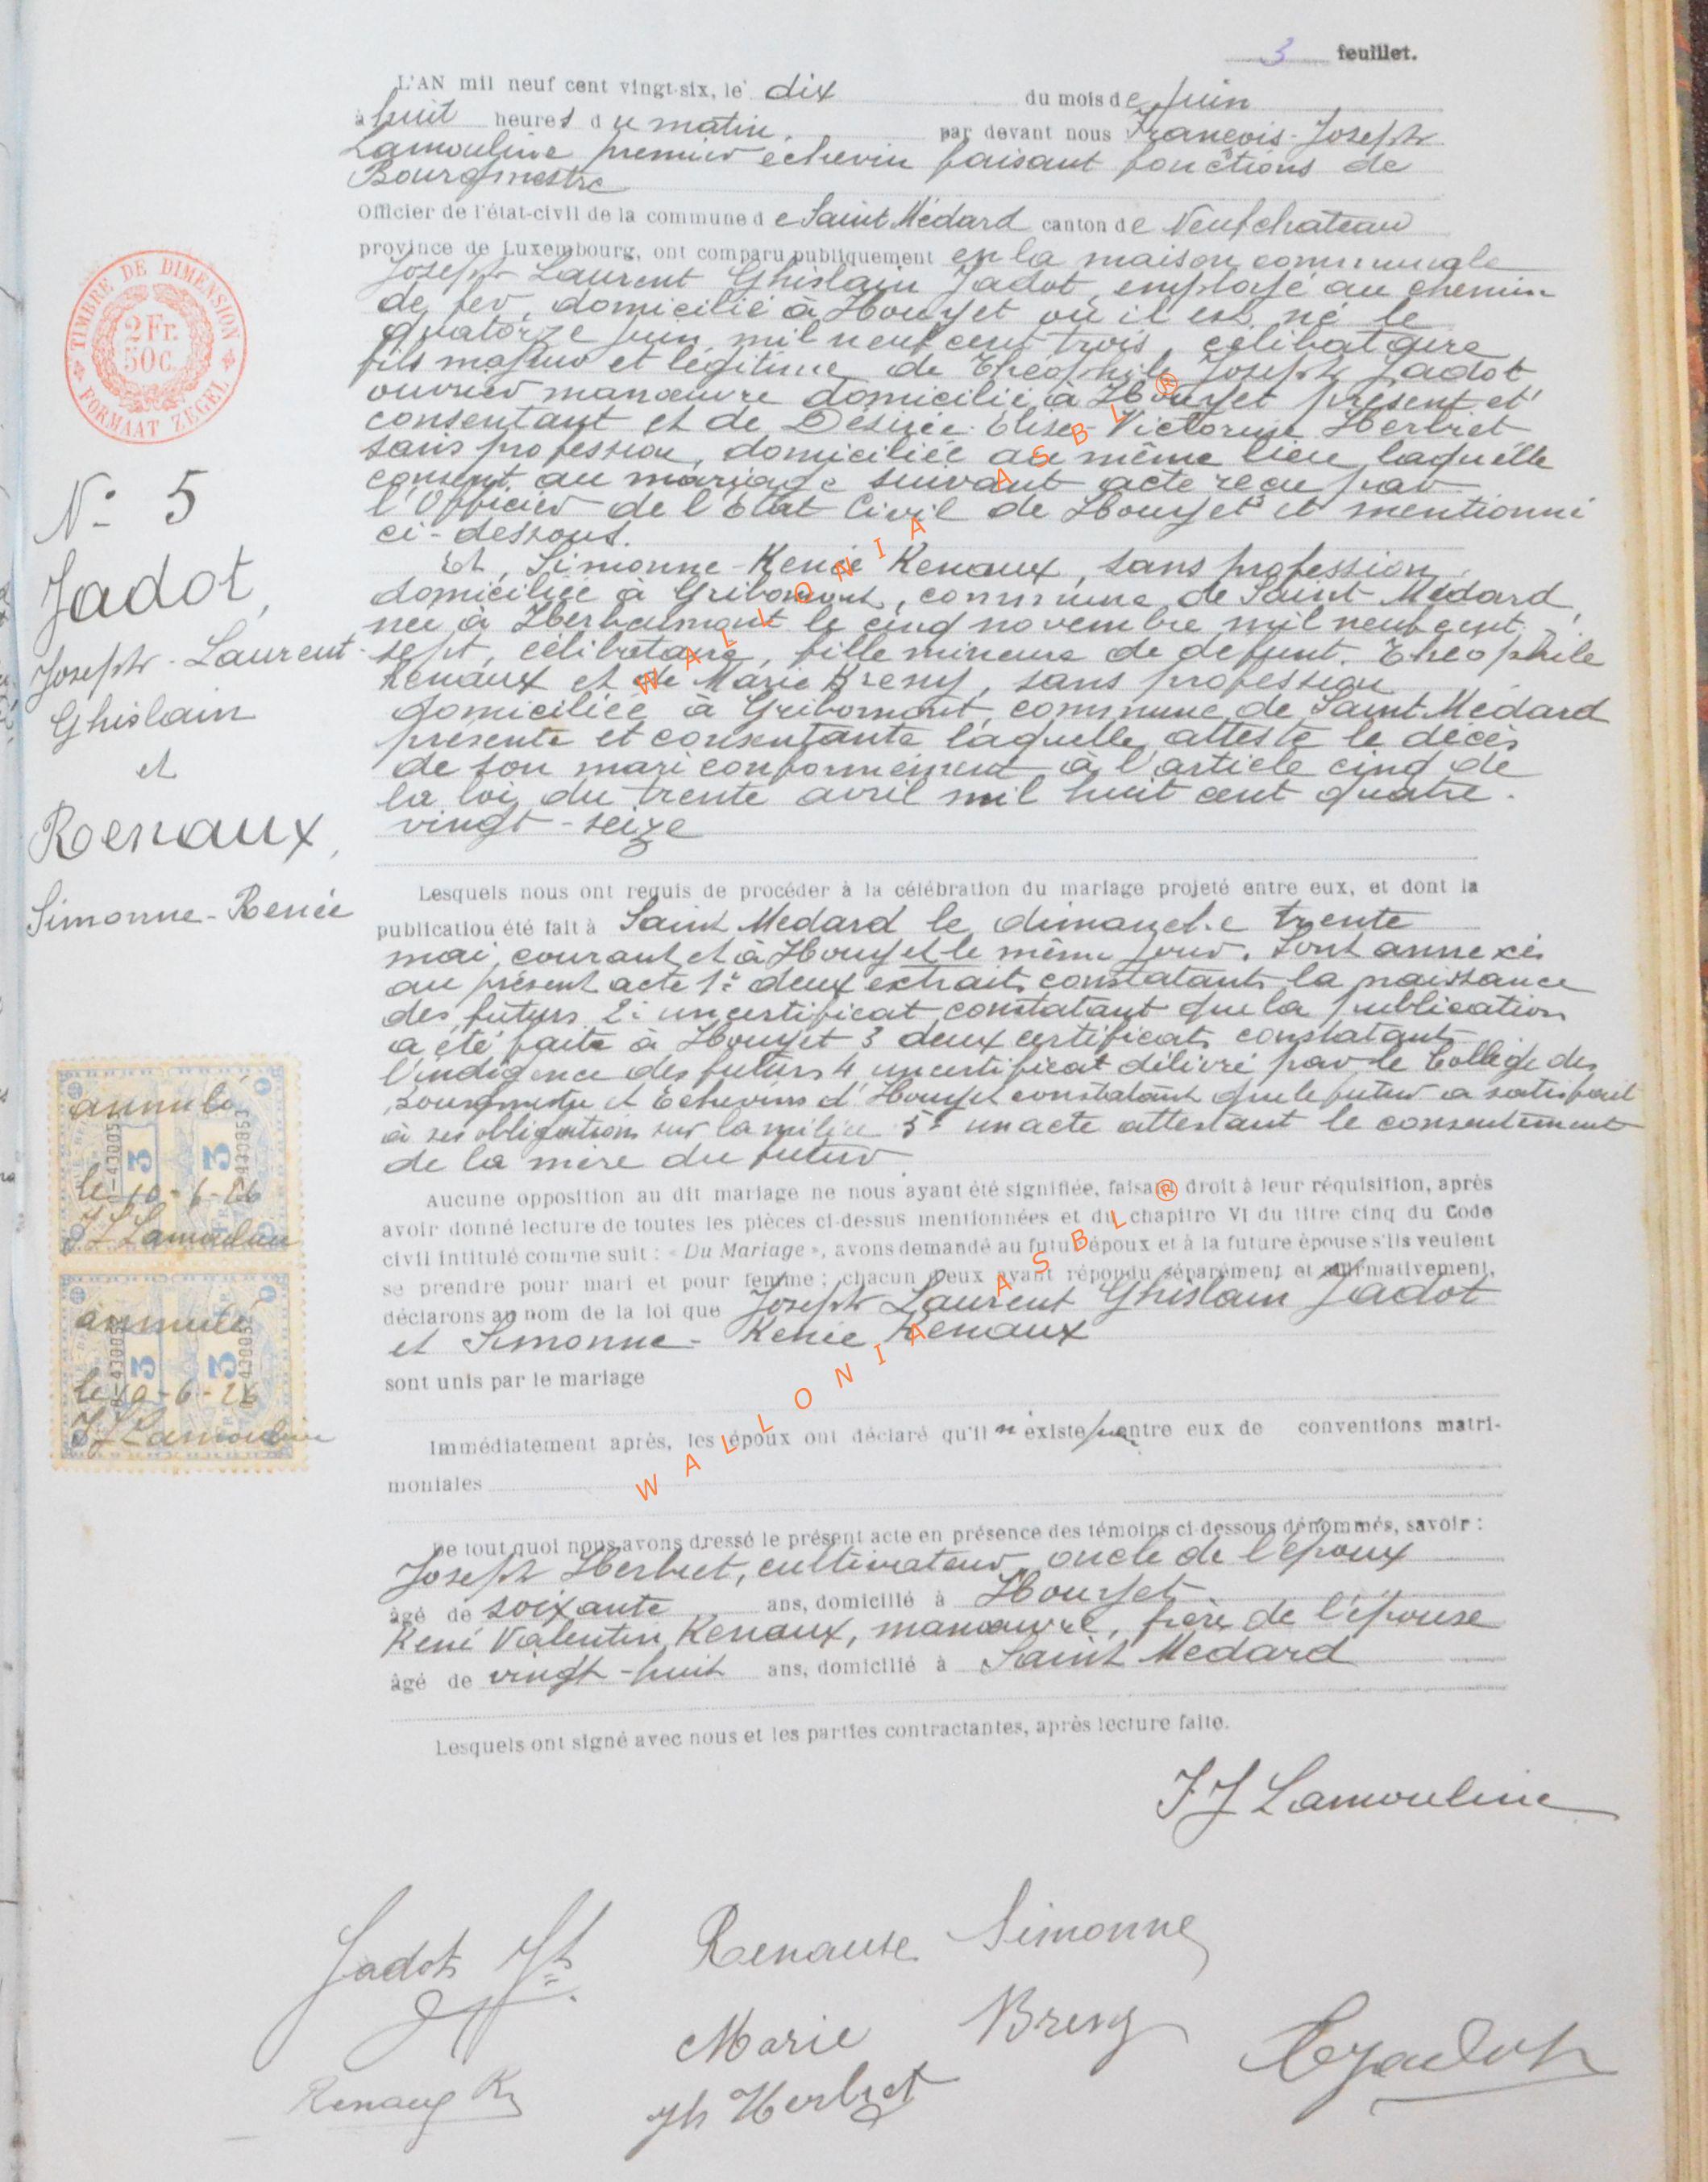 3 feuillet.
L'AN mil neuf cent vingt-six, le dix du mois de juin
à huit heures du matin, par devant nous François-Joseph
Lamouline premier échevin faisant fonctions de
Bourgmestre
Officier de l'état-civil de la commune de Saint Médard canton de Neufchateau
province de Luxembourg, ont comparu publiquement en la maison communale
Joseph Laurent Ghislain Jadot, employé au chemin
de fer, domicilié à Houyet où il est né le
quatorze juin mil neuf cent trois, célibataire
fils majeur et légitime de Théophile Joseph Jadot
ouvrier manœuvre domicilié à Houyet présent et
consentant et de Désirée Elise Victorine Herbiet
sans profession, domiciliée au même lieu, laquelle
consent au mariage suivant acte reçu par
l'Officier de l'Etat Civil de Houyet et mentionné
ci-dessous.
Et, Simonne-Renée Renaux, sans profession,
domiciliée à Gribomont, commune de Saint Médard,
née à Herbeumont le cinq novembre mil neuf cent
sept, célibataire, fille mineure de defunt Théophile
Renaux et de Marie Breny, sans profession
domiciliée à Gribomont, commune de Saint Médard
présente et consentante laquelle atteste le décès
de son mari conformément à l'article cinq de
la loi du trente avril mil huit cent quatre-
vingt-seize
Lesquels nous ont requis de procéder à la célébration du mariage projeté entre eux, et dont la
publication été fait à Saint Medard le dimanche trente
mai, courant, et à Houyet le même jour. Sont annexés
au présent acte 1° deux extraits constatant la naissance
des futurs 2° un certificat constatant que la publication
a été faite à Houyet 3 deux certificats constatant
l'indigence des futurs 4 un certificat délivré par le Collège des
bourgmestre et Echevins d'Houyet constatant que le futur a satisfait
à ses obligations sur la milice 5° un acte attestant le consentement
de la mère du futur
Aucune opposition au dit mariage ne nous ayant été signifiée, faisant droit à leur réquisition, après
avoir donné lecture de toutes les pièces ci-dessus mentionnées et du chapitre VI du titre cinq du Code
civil intitulé comme suit : « Du Mariage », avons demandé au futur époux et à la future épouse s'ils veulent
se prendre pour mari et pour femme ; chacun d'eux ayant répondu séparément et affirmativement,
déclarons au nom de la loi que Joseph Laurent Ghislain Jadot
et Simonne-Renée Renaux
sont unis par le mariage
Immédiatement après, les époux ont déclaré qu'il n'existe pas entre eux de conventions matri-
moniales
De tout quoi nous avons dressé le présent acte en présence des témoins ci-dessous dénommés, savoir :
Joseph Herbiet, cultivateur, oncle de l'époux
âgé de soixante ans, domicilié à Houyet
René Valentin Renaux, manœuvre, frère de l'épouse
âgé de vingt-huit ans, domicilié à Saint Medard
Lesquels ont signé avec nous et les parties contractantes, après lecture faite.
FJ Lamouline
Jadot Jh Renaux Simonne
Marie Breny
Renaux R Jh Herbiet
Jadot
TIMBRE DE DIMENSION
2 Fr.
50 c.
FORMAAT ZEGEL
N° 5
Jadot,
Joseph-Laurent-
Ghislain
et
Renaux,
Simonne-Renée
annulé
3 3
le 10-6-26
FJ Lamouline
annulé
3 3
le 10-6-26
FJ Lamouline
WALLONIA ASBL ®
WALLONIA ASBL ®